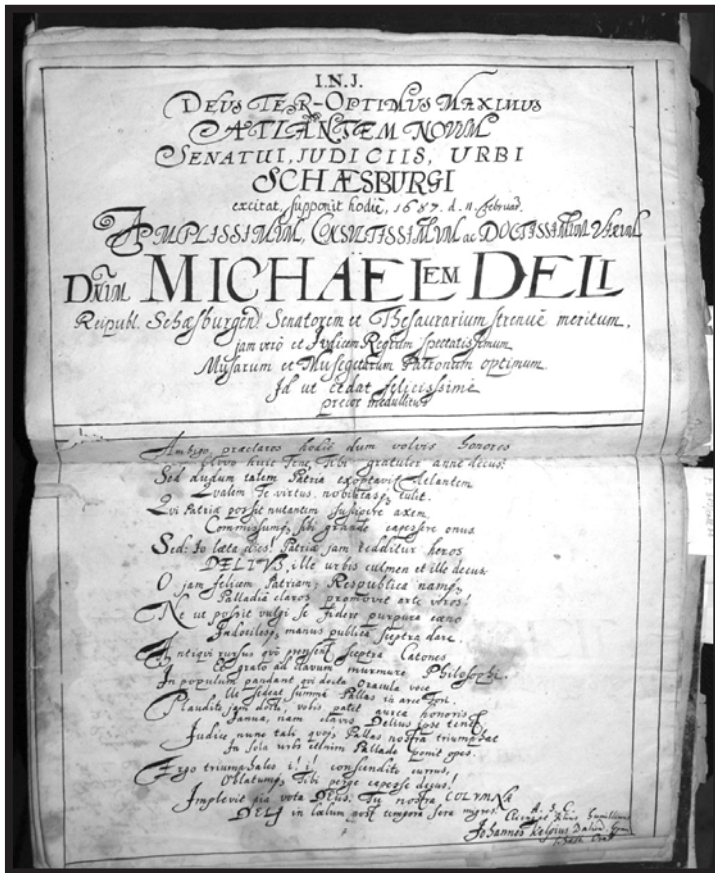 I.N.J.
DEUS TER-OPTIMUS MAXIMUS
ATLANTEM NOVUM
SENATUI, JUDICIIS, URBI
SCHÆSBURGI
excitat, supponit hodiè, 1687. d. 11. februar.
AMPLISSIMUM, CONSULTISSIMUM ac DOCTISSIMUM VIRUM
DNUM MICHAELEM DELI
Reipubl. Schæsburgens. Senatorem et Thesaurarium strenuè meritum,
jam verò et Judicem Regium spectatissimum
Musarum et Musegetarum Patronum optimum.
Id ut cedat felicissimè
precor medullitus
Ambigo, præclaros hodiè dum volvis honores
huic Tene, Tibi gratuler anne decus?
Sed dudum talem Patria exoptavit
Qualem Te virtus, nobilitasq, tulit.
Qui Patriæ possit nutantem suscipere axem,
Commissumq, sibi grande capessere onus.
Sed: Io læta dies! Patriæ jam redditur heros
DELIVS, ille urbis culmen et ille decus.
O jam felicem Patriam, Respublica namq,
Palladiâ claros promovet arte viros!
Ne ut possit vulgi se fidere purpura cæno
Indocilesq, manus publica sceptra dare.
Antiqui rursus quò prensent sceptra Catones
Et grato ad clavum murmure Philosophi.
In populum pandant qui docta Oracula voce
Ille sedeat summâ Pallas in arce fori.
Plaudite jam docti, vobis patet aurea honoris
Janua, nam clavis Delius ipse tenet.
Judice nunc tali quoq, Pallas nostra triumphat
In sola urbs etenim Pallade ponit opes.
Ergo triumphales i! i! conscendito currus,
Oblatumq, Tibi perge capesse decus!
Implevit pia vota DEus: Tu nostra COLUMNA
DELI in cælum post tempora sera migres.
Johannes Kelpius